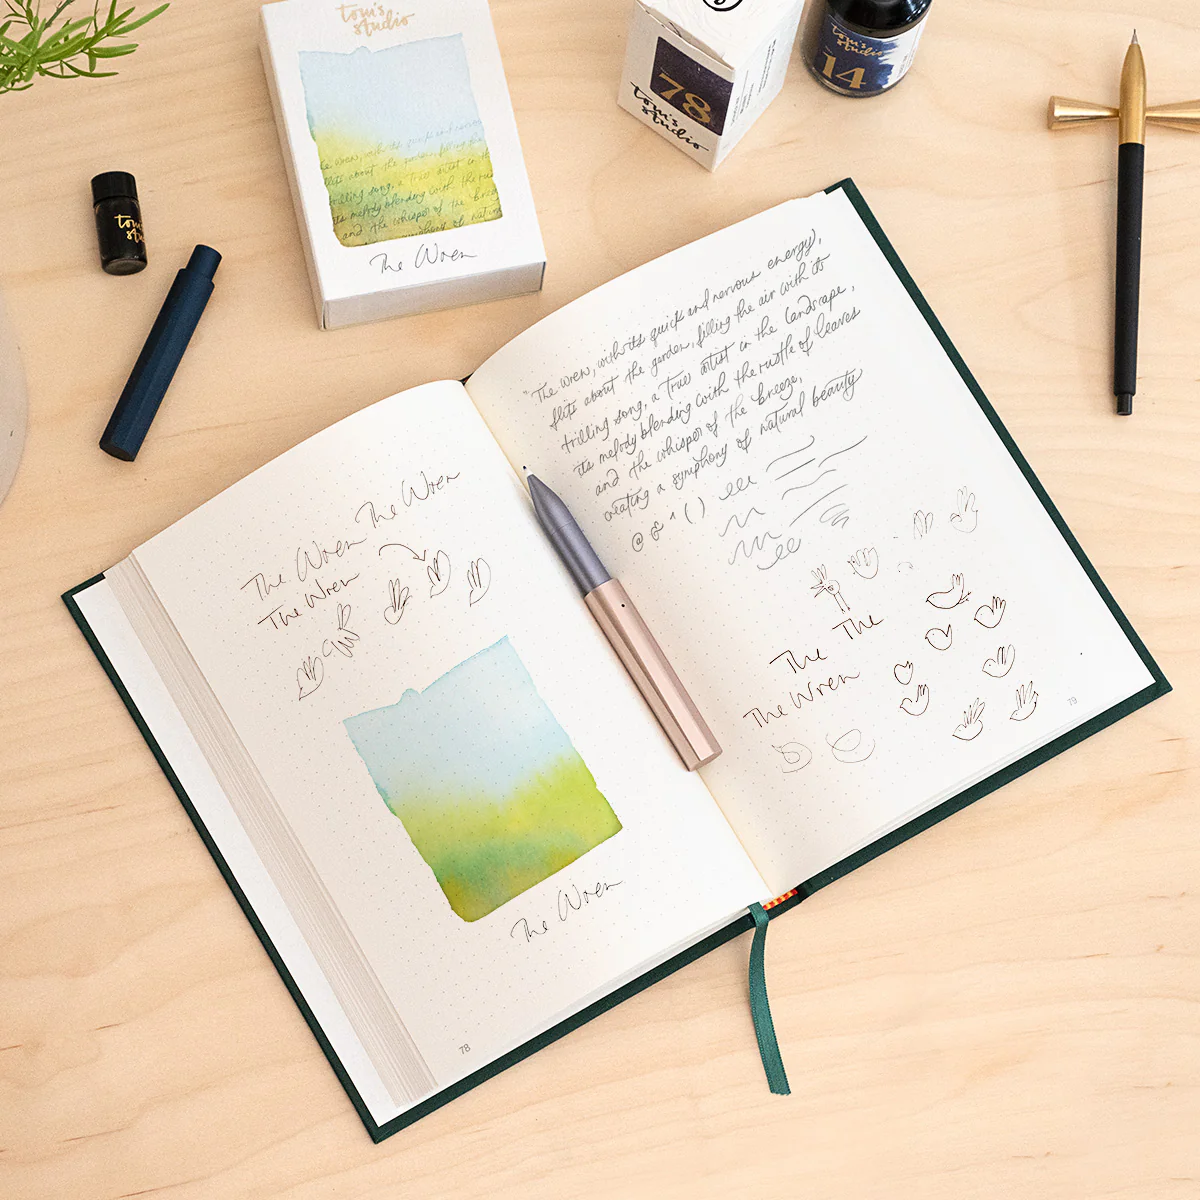 tom's
studio
ke wren, with its quick and nervous
flits about the garden, filling the
trilling song, a true artist in th
its melody blending with the rus
and the whisper of the bree
symphony of natur
The Wren
78
tom's
studio
tom's
studio
14
tom's
stu
The Wren
The Wren
The Wren
The Wren
78
"The wren, with its quick and nervous energy,
flits about the garden, filling the air with its
trilling song, a true artist in the landscape,
its melody blending with the rustle of leaves
and the whisper of the breeze,
creating a symphony of natural beauty
@ & ^ ( )
The
The
The Wren
79